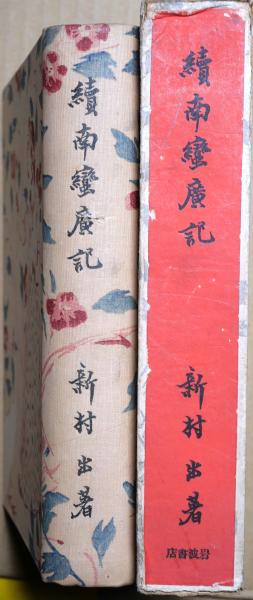 續南蠻廣記
新村出著
續南蠻廣記
新村出著
岩波書店